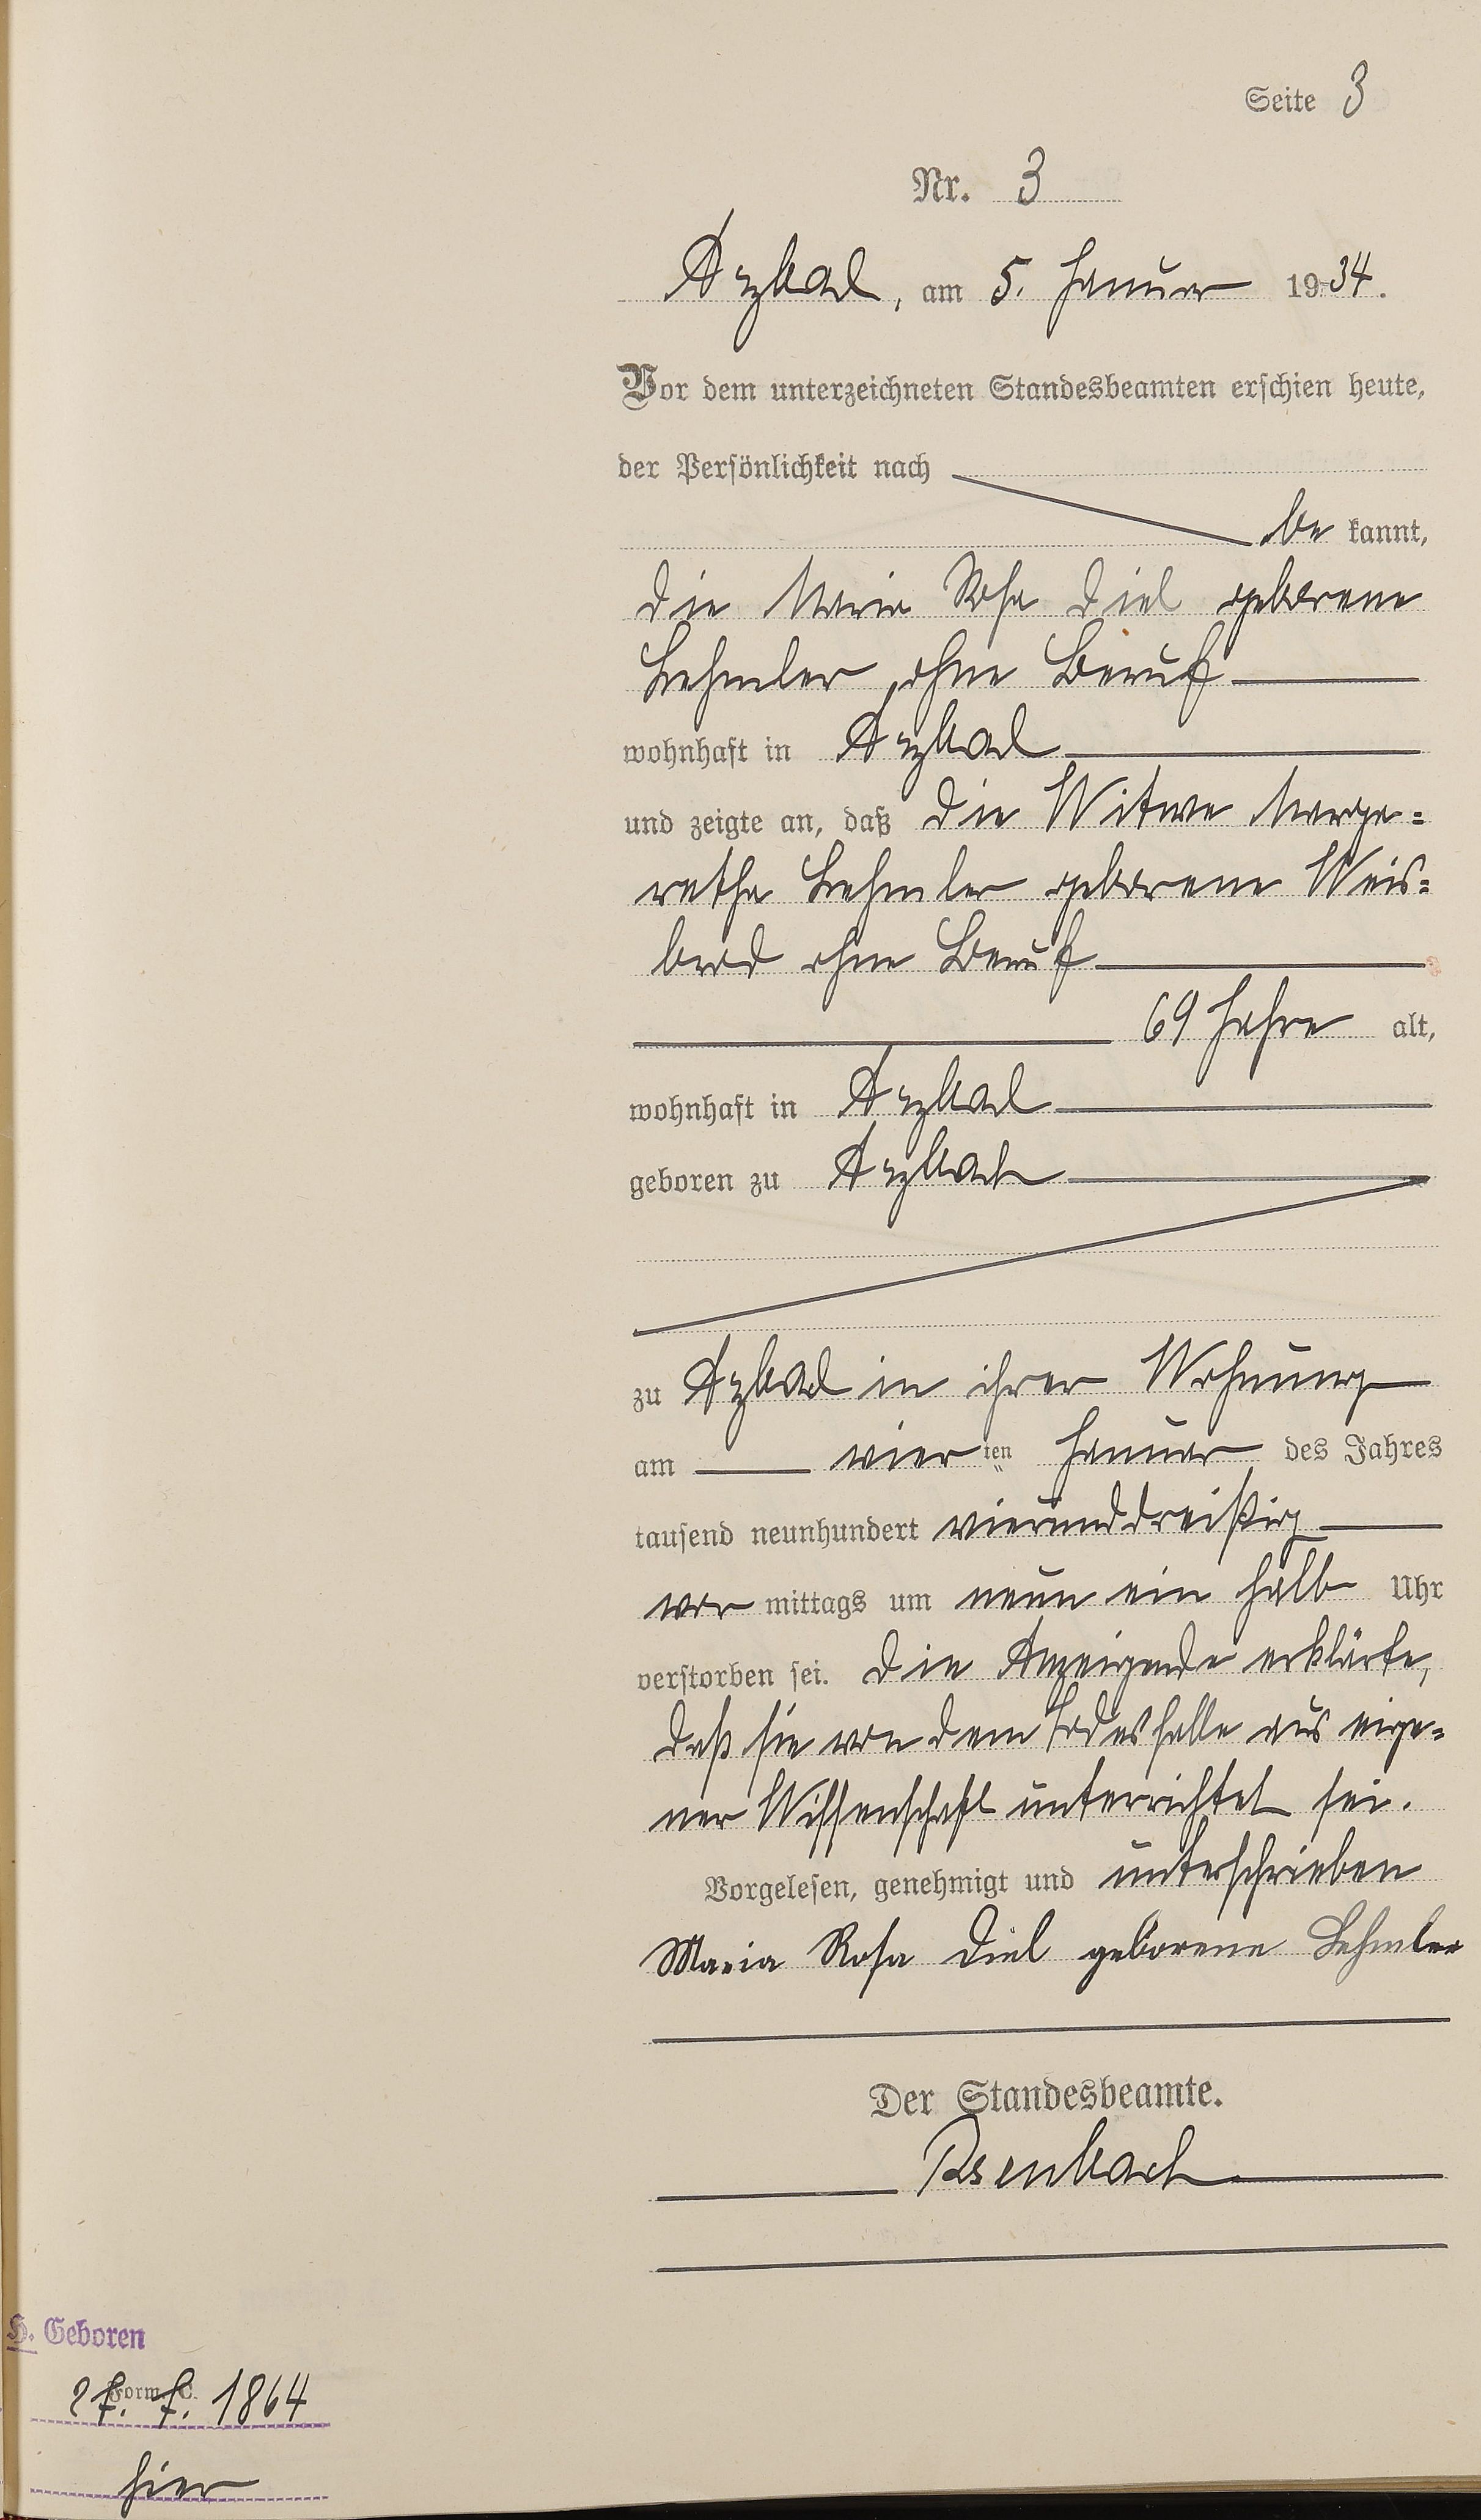 Seite 3
Nr. 3
Arzbach, am 5. Januar 1934.
Vor dem unterzeichneten Standesbeamten erschien heute,
der Persönlichkeit nach
be kannt,
die Maria Rosa Diel geborene
Lehmler, ohne Beruf
wohnhaft in Arzbach
und zeigte an, daß die Witwe Marga=
retha Lehmler geborene Weis=
brod ohne Beruf
69 Jahre alt,
wohnhaft in Arzbach
geboren zu Arzbach
zu Arzbach in ihrer Wohnung
am vierten Januar des Jahres
tausend neunhundert vierunddreißig
vor mittags um neun ein halb Uhr
verstorben sei. Die Anzeigende erklärte,
daß sie von dem Todesfalle aus eige=
ner Wissenschaft unterrichtet sei.
Vorgelesen, genehmigt und unterschrieben
Maria Rosa Diel geborene Lehmler
Der Standesbeamte.
H. Geboren
Form. C.
27. 7. 1864
hier